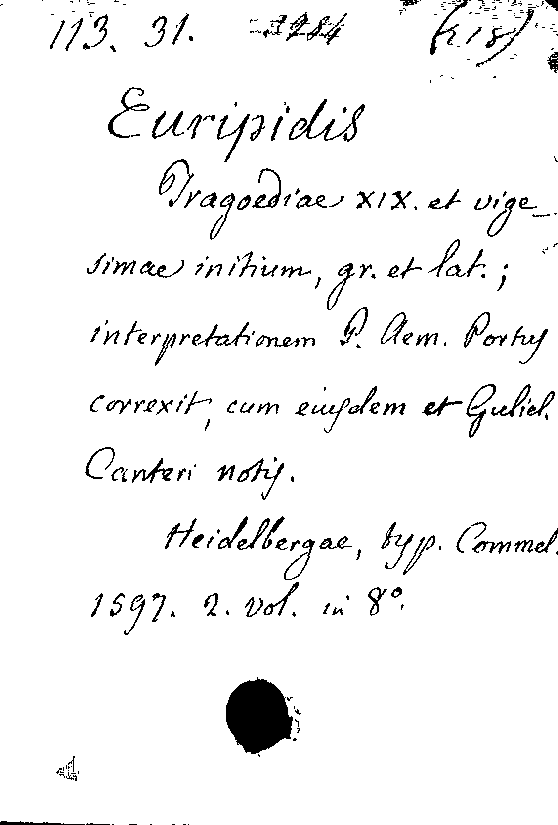 113. 31. (R18)
Euripidis
Tragoediae XIX. et vige_
simae initium, gr. et lat. ;
interpretationem P. Aem. Portus
correxit, cum eiusdem et Guliel.
Canteri notis.
Heidelbergae, typ. Commel.
1597. 2. vol. in 8º.